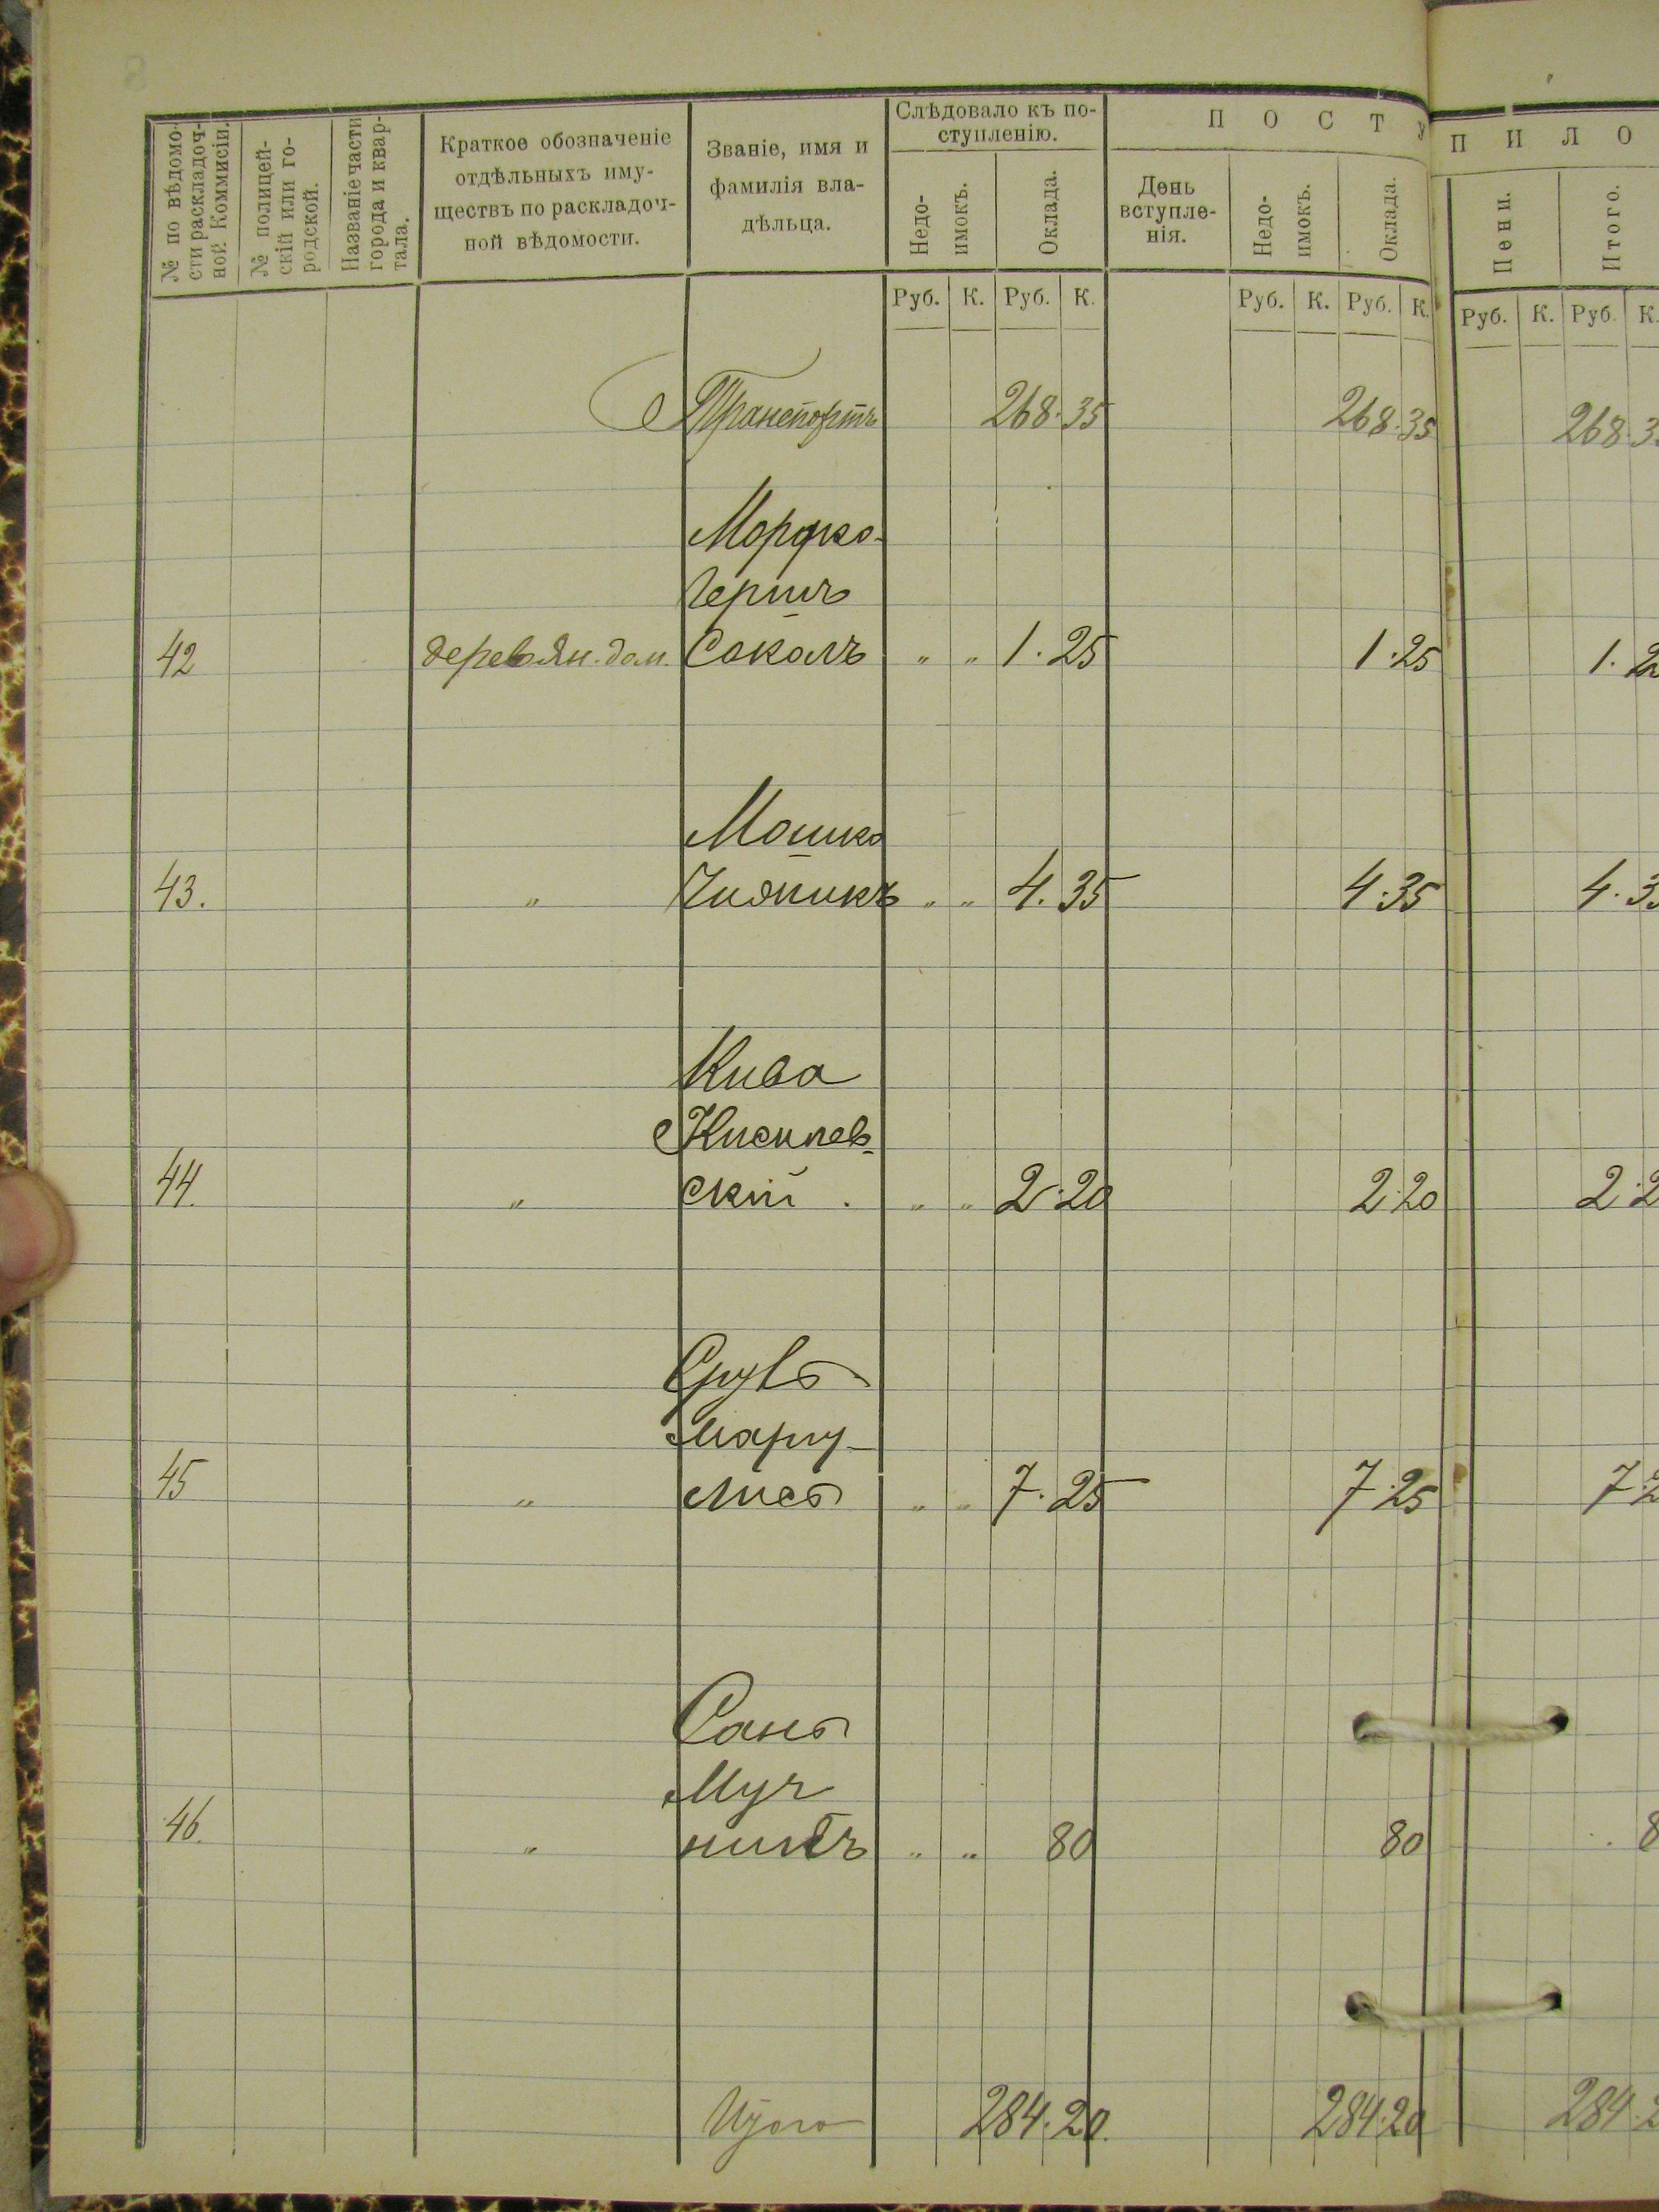 8
№ по вѣдомо-
сти раскладоч-
ной Коммисіи.
№ полицей-
скій или го-
родской.
Названіе части
города и квар-
тала.
Краткое обозначеніе
отдѣльныхъ иму-
ществъ по раскладоч-
ной вѣдомости.
Званіе, имя и
фамилія вла-
дѣльца.
Слѣдовало къ по-
ступленію.
Недо-
имокъ.
Оклада.
П О С Т У
П И Л О
День
вступле-
нія.
Недо-
имокъ.
Оклада.
Пени.
Итого.
Руб. К. Руб. К. Руб. К. Руб. К. Руб. К. Руб. К.
Транспортъ 268.35 268.35 268.3
Мордко-
Гершъ
42 деревян. дом. Соколъ " " 1.25 1.25 1.2
Мошко
43. " Чижикъ " " 4.35 4.35 4.3
Кива
Кисилев-
44. " скій . " " 2.20 2.20 2.2
Срулъ
Маргу-
45 " лисъ " " 7.25 7.25 7.2
Сана
Муч
46. " никъ " " 80 80 8
Итого 284.20. 284.20 284.2